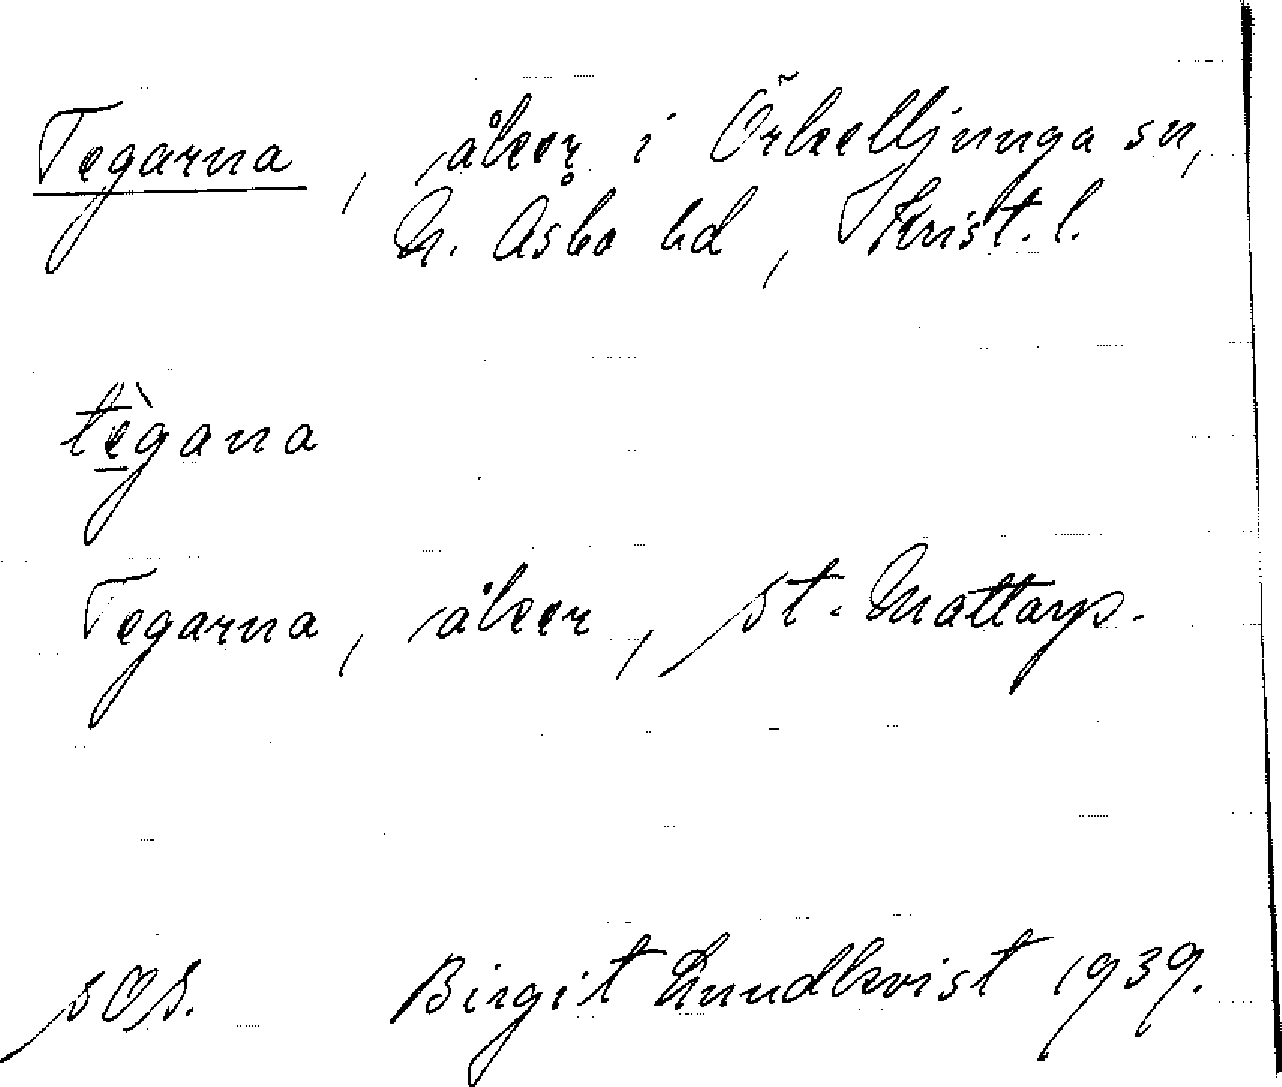 Tegarna, åker i Örkelljunga sn,
N. Åsbo hd, Krist. l.
tègana
Tegarna, åker, St. Mattarp.
SOS. Birgit Lundkvist 1939.